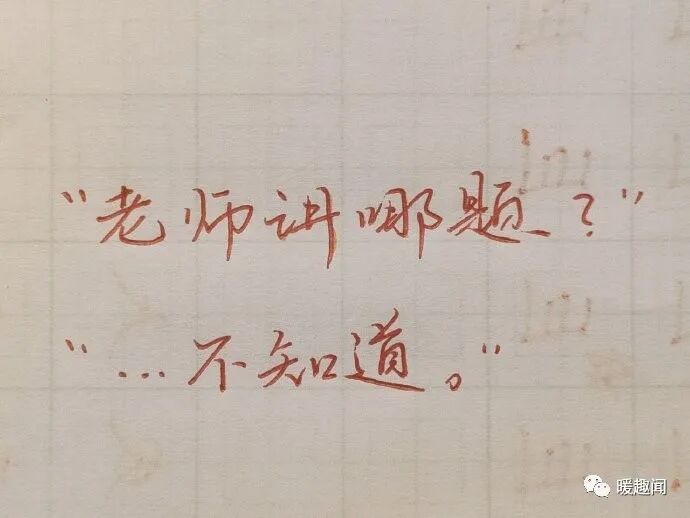 “老师讲哪题？”
“…不知道。”
暖趣闻